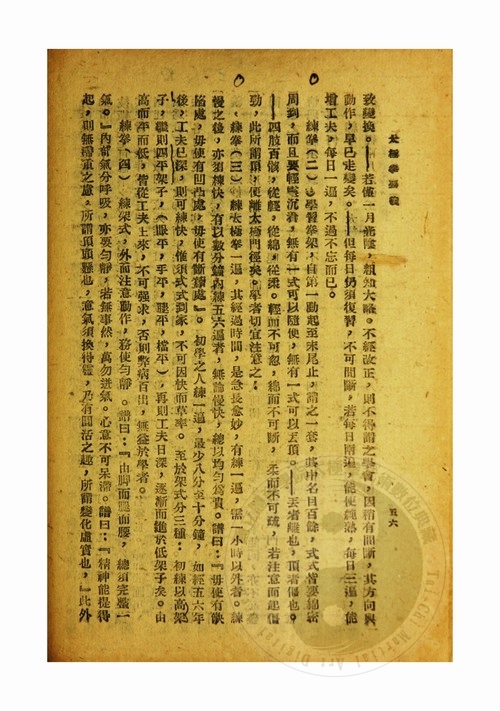 致變換。——若僅一月光陰，粗知大略。不經改正，則不得謂之學會，因稍有間斷，其方向與
動作，早已走變矣。——但每日仍須復習，不可間斷，若每日兩遍，能使純熟，每日三遍，能
增工夫，每日一遍，不過不忘而已。
練拳（二），學習拳架，自第一動起至末尾止，謂之一套，其中名目百餘，式式皆要綿密
周到，而且要輕靈沉着，無有一式可以隨便，無有一式可以丟頂。——丟者離也，頂者傷也。
——四肢百骸，從輕，從綿，從柔。輕而不可忽，綿而不可斷，柔而不可疏，若注意而起僵
勁，此所謂頂，便離太極門徑矣。學者切宜注意之：
練拳（三），練太極拳一遍，其經過時間，是愈長愈妙，有練一遍，需一小時以外者。練
慢之後，亦須練快，有以數分鐘內練五六遍者，無論慢快，總以均勻爲貴。譜曰：『毋使有缺
陷處，毋使有凹凸處，毋使有斷續處』。初學之人練一遍，最少八分至十分鐘，如經五六年
後，工夫已深，則可練快，惟須式式到家，不可因快而草率。至於架式分三種：初練以高架
子，繼則四平架子，（眼平，手平，腿平，檔平），再則工夫日深，逐漸而進於低架子矣。由
高而平而低，皆從工夫上來，不可强求，否則弊病百出，無益於學者。
練拳（四），練架式，外面注意動作，務使勻靜。譜曰：『由脚而腿而腰，總須完整一
氣。』內部氣分呼吸，亦要勻靜，若無事然，萬勿迸氣。心意不可呆滯。譜曰：『精神能提得
起，則無遲重之虞。所謂頂頭懸也，意氣須換得靈，乃有圓活之趣，所謂變化虛實也，』此外
太極拳講義
五六
Tai-Chi Martial Art Digital